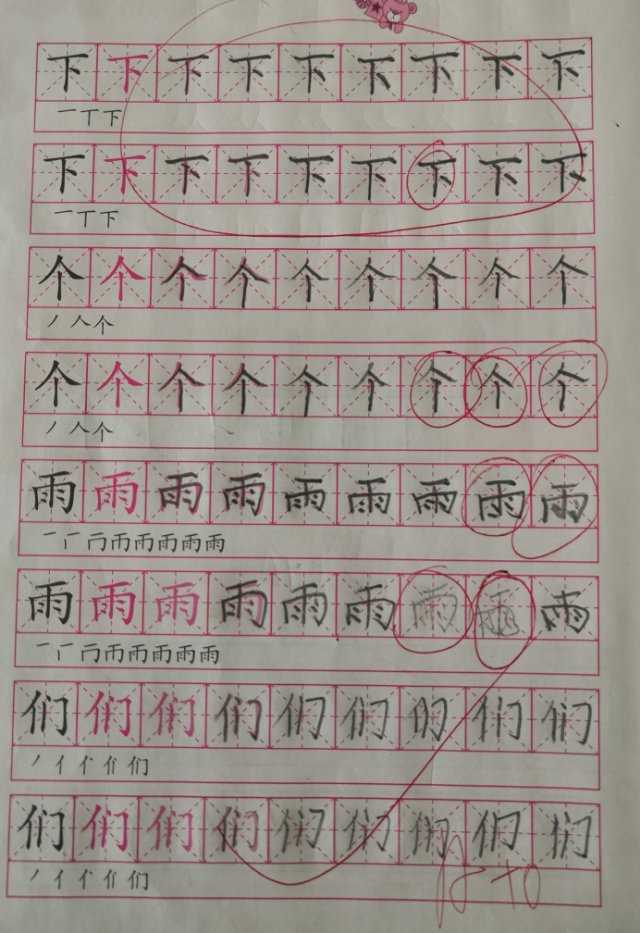 下下下下下下下下下
一丅下
下下下下下下下下下
一丅下
个个个个个个个个个
丿人个
个个个个个个个个个
丿人个
雨雨雨雨雨雨雨雨雨
雨
雨雨雨雨雨雨雨雨
雨
们们们们们们们们们
丿亻们
们们们们们们们们们
丿亻们